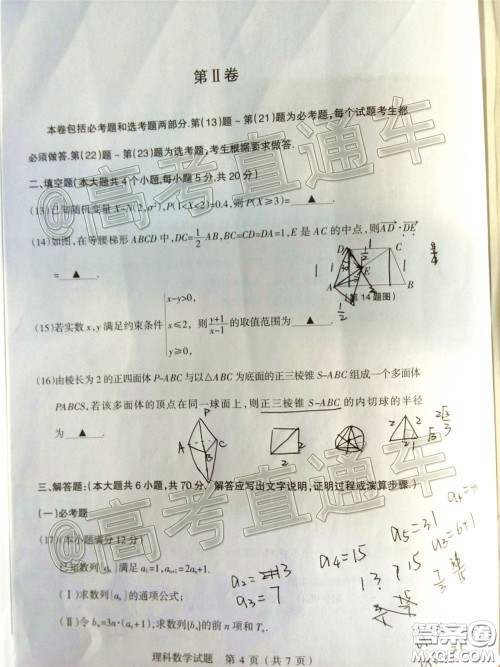 第Ⅱ卷
本卷包括必考题和选考题两部分.第(13)题~第(21)题为必考题,每个试题考生都
必须做答.第(22)题~第(23)题为选考题,考生根据要求做答.
二、填空题(本大题共4个小题,每小题5分,共20分)
(13)已知随机变量X~N(2,σ²),P(1<X<2)=0.4,则P(X≥3)= ▲ .
(14)如图,在等腰梯形ABCD中,DC=1/2AB,BC=CD=DA=1,E是AC的中点,则AD·DE
= ▲ .
D C
E
A B
(第14题图)
x-y>0,
(15)若实数x,y满足约束条件 x≤2, 则(y+1)/(x-1)的取值范围为 ▲ .
y≥0,
(16)由棱长为2的正四面体P-ABC与以△ABC为底面的正三棱锥S-ABC组成一个多面体
PABCS,若该多面体的顶点在同一球面上,则正三棱锥S-ABC的内切球的半径
为 ▲ .
P
A B C
2 2
2 2
三、解答题:(本大题共6小题,共70分.解答应写出文字说明,证明过程或演算步骤.)
(一)必考题
(17)(本小题满分12分)
已知数列{aₙ}满足a₁=1,aₙ₊₁=2aₙ+1.
(Ⅰ)求数列{aₙ}的通项公式;
(Ⅱ)令bₙ=3n·(aₙ+1),求数列{bₙ}的前n项和Tₙ.
a₂=3
a₃=7
a₄=15
a₅=31
1 3 7 15
理科数学试题 第4页(共7页)
@高考直通车
@高考直通车
@高考直通车
答案圈
MXQE.COM